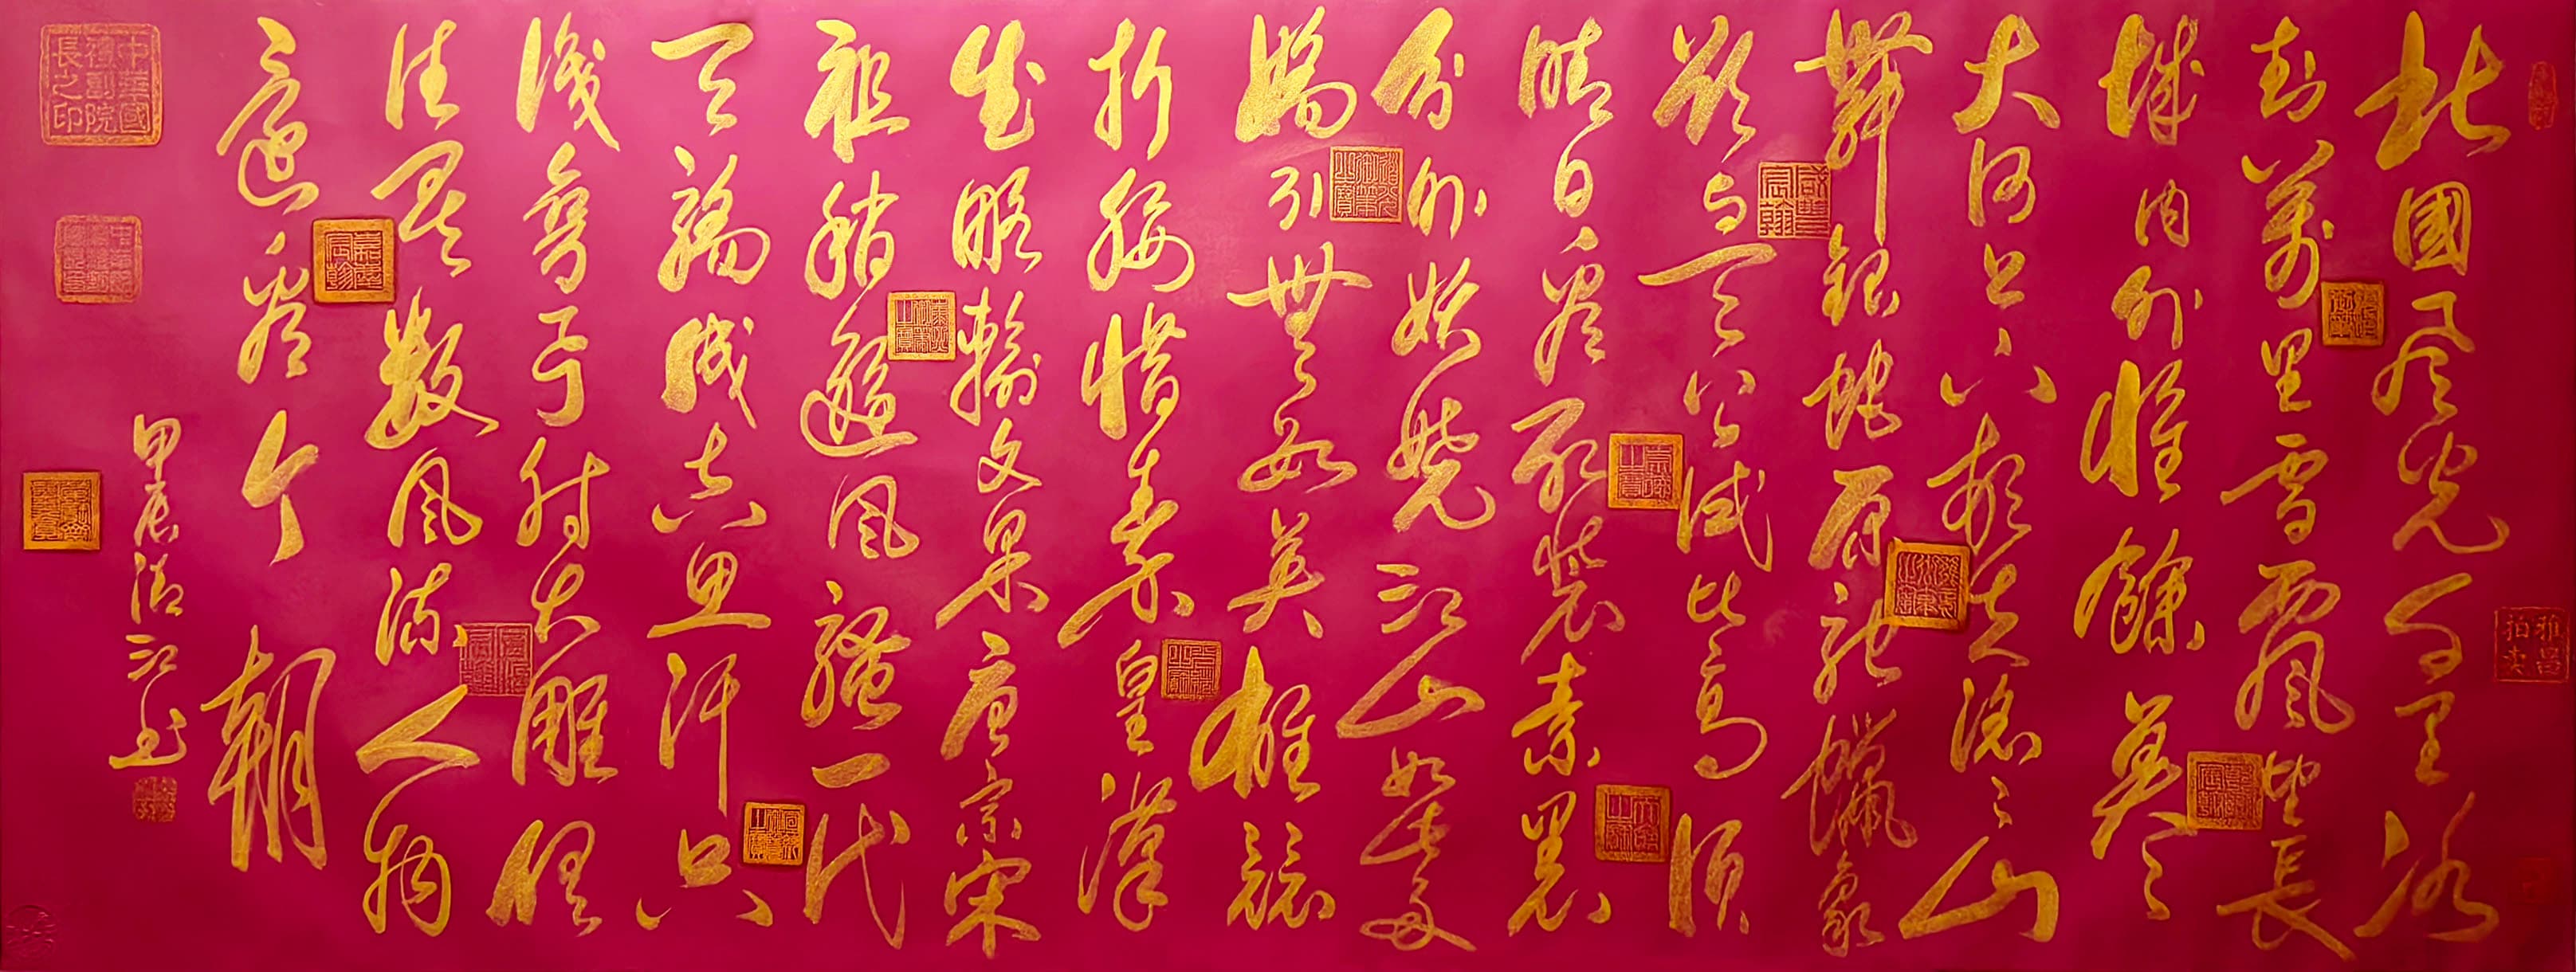 北國風光千里冰
封萬里雪飄望長
城内外惟餘莽々
大河上下頓失滔々山
舞銀蛇原馳蠟象
欲与天公試比高須
晴日看紅裝素裹
分外妖嬈江山如此多
嬌引無數英雄競
折腰惜秦皇漢
武略輸文采唐宗宋
祖稍遜風騷一代
天驕成吉思汗只
識彎弓射大雕俱
往矣數風流人物
還看今朝
甲辰 江
雅昌拍卖
中華國禮副院長之印